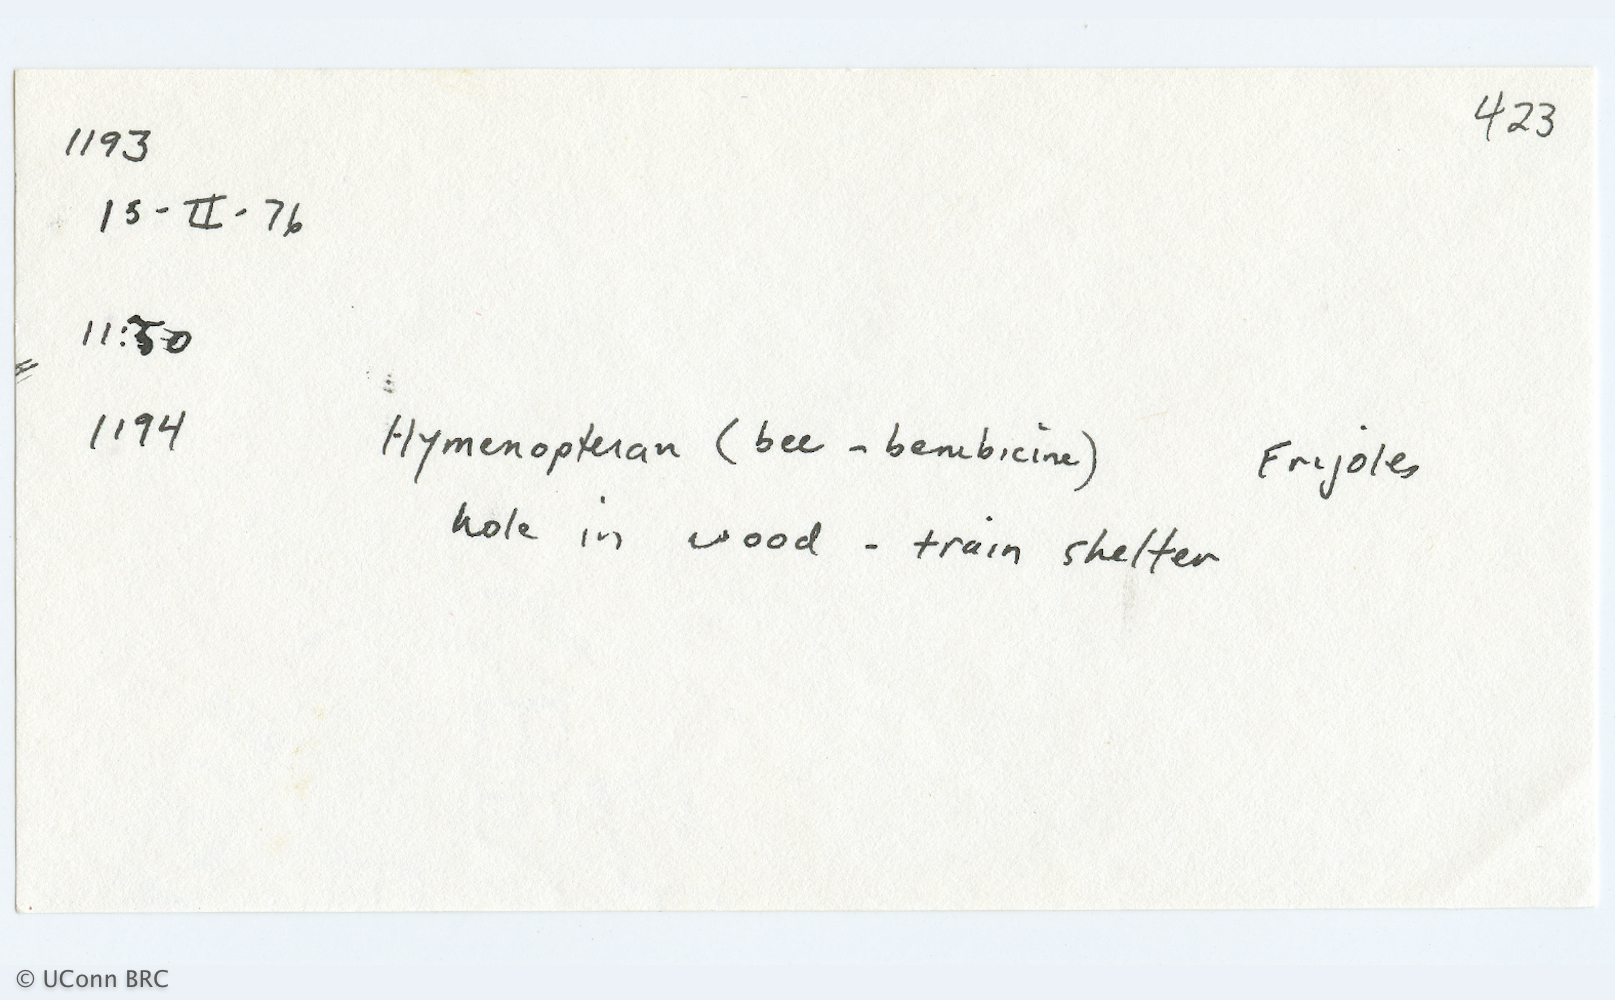 423
1193
15-II-76
11:50
1194 Hymenopteran (bee - bembicine) Frijoles
hole in wood - train shelter
© UConn BRC